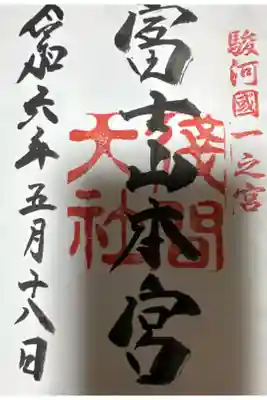 駿河國一之宮
富士山本宮
浅間大社
令和六年五月十八日